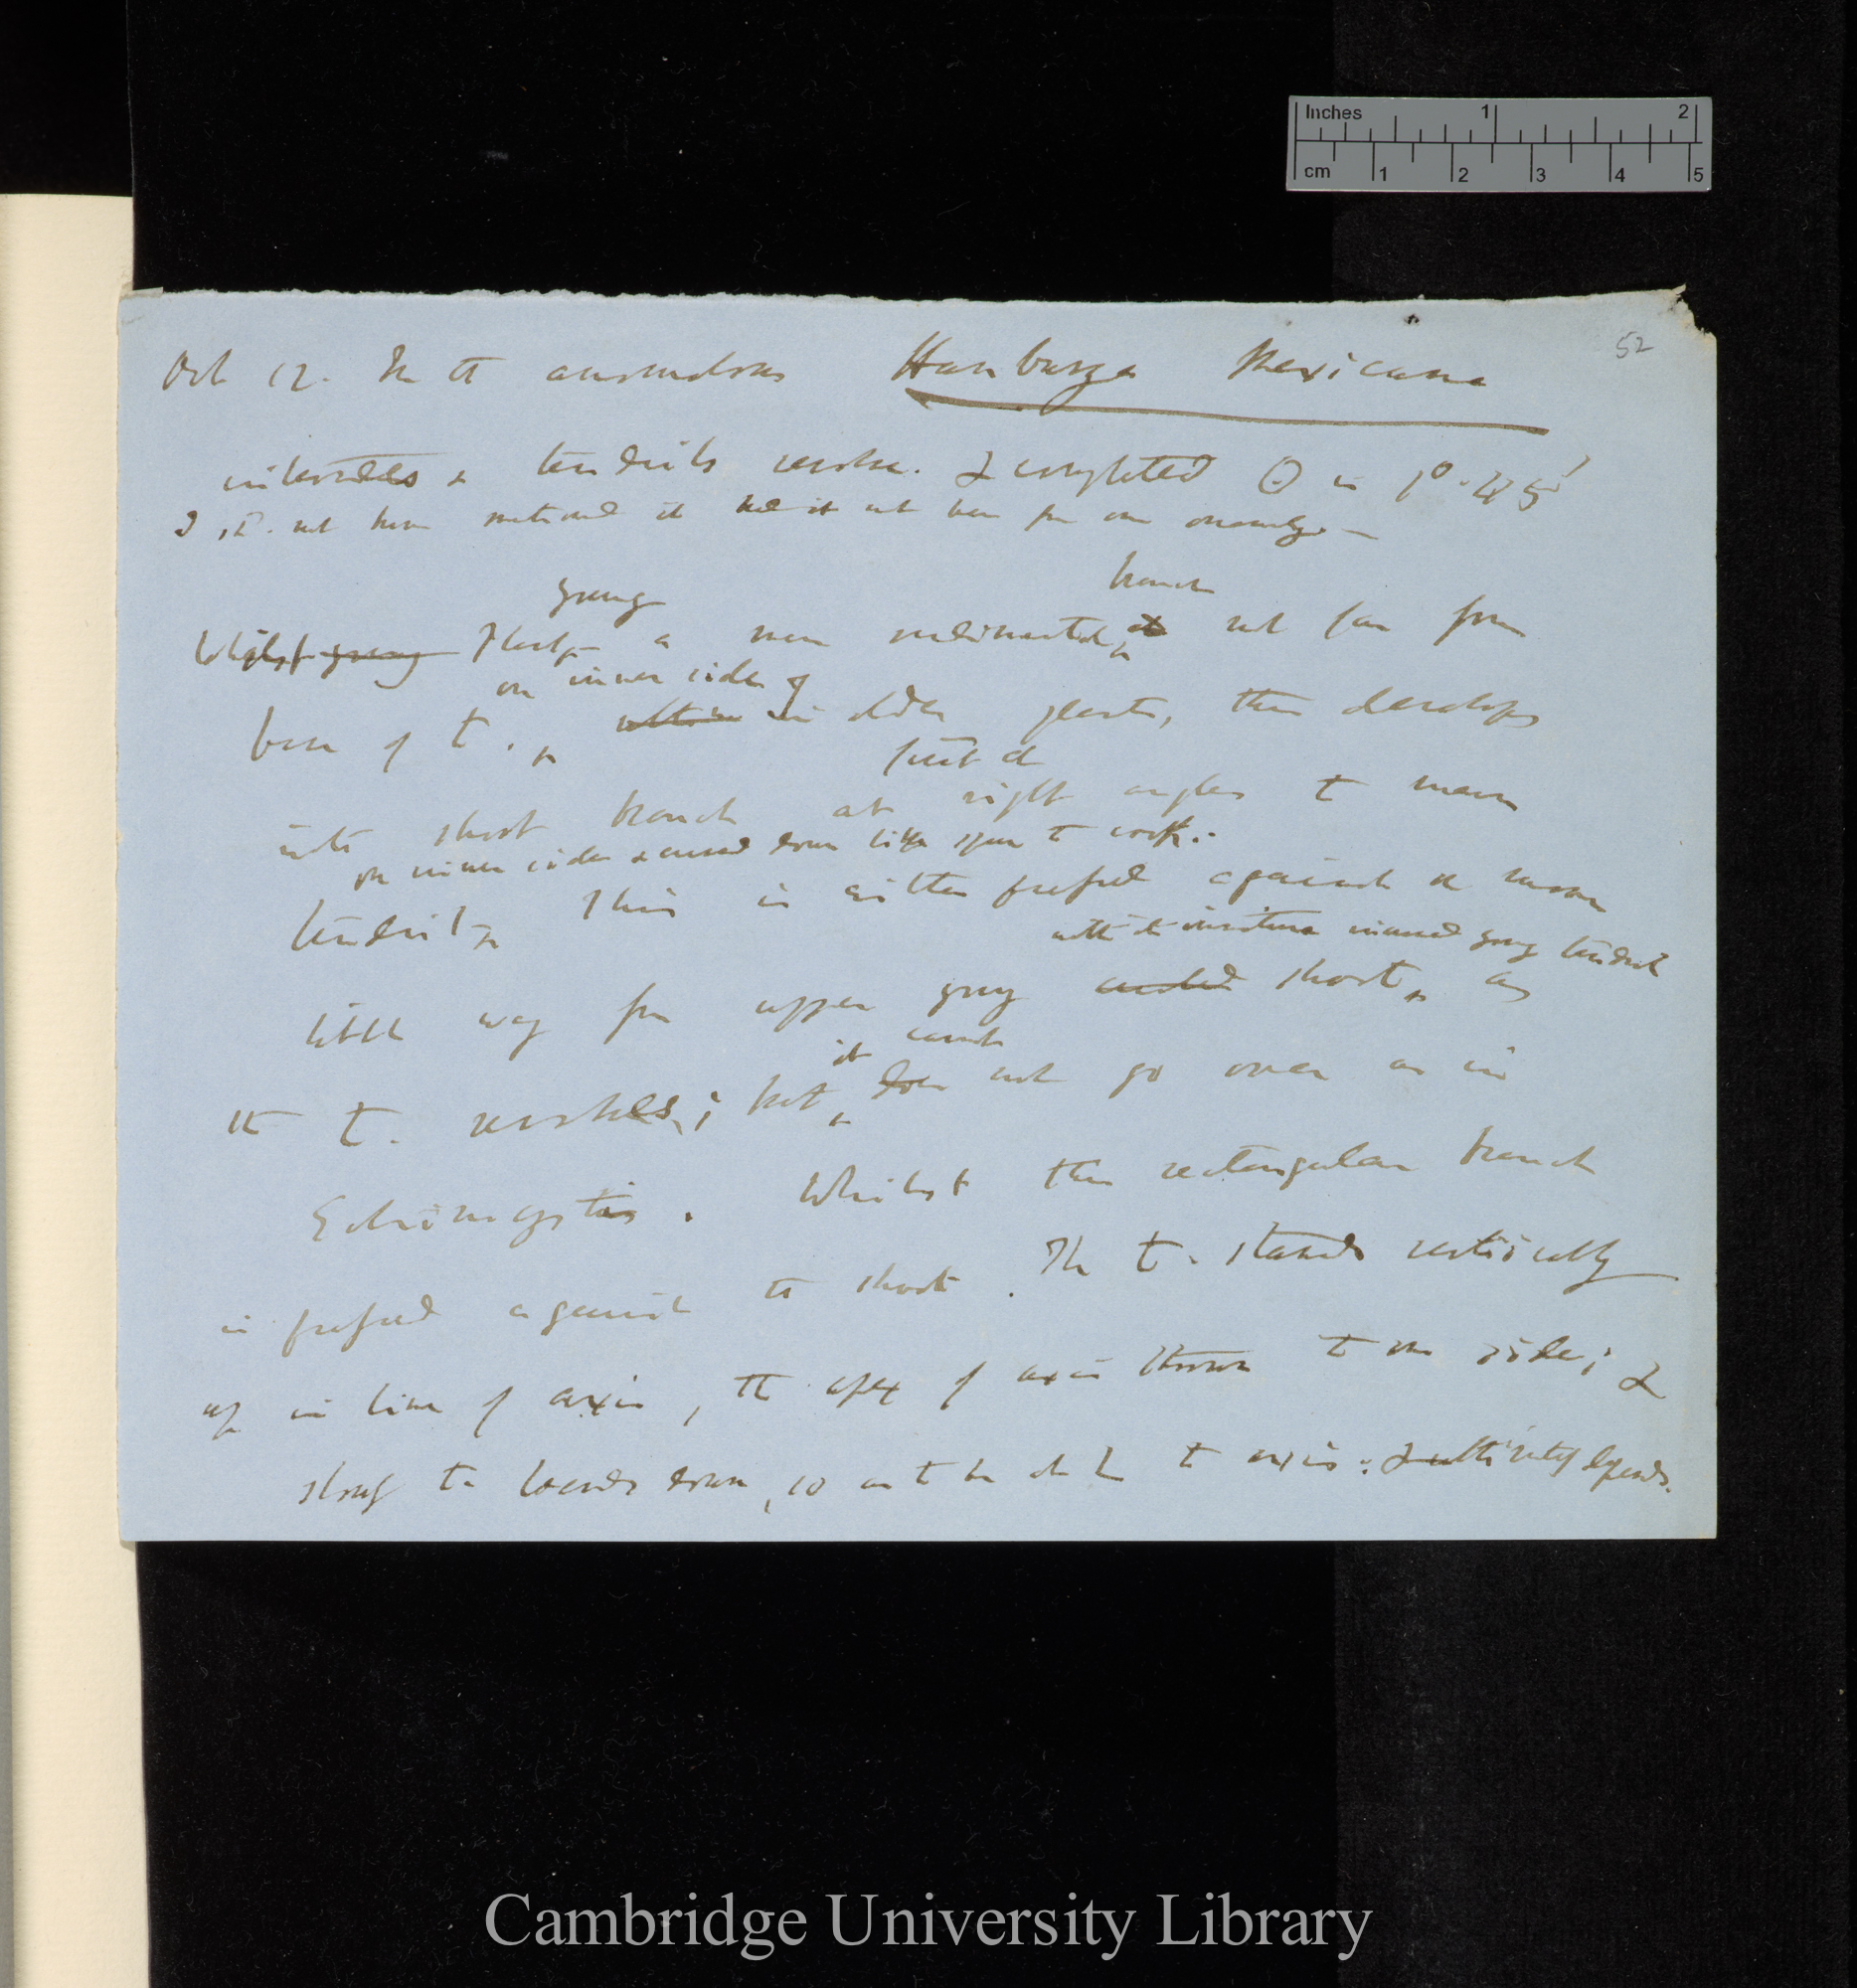 Inches 1 2
cm 1 2 3 4 5
52
Oct 12. In the anomalous Hanburya Mexicana
internodes & tendrils revolve. I completed ⊙ in 1°. 45'
I sh. not have noticed it had it not been for our
young branch
Whilst young Plant, a mere rudimental not far from
on inner side of
base of t. in older plants, this develops
into short branch at right angles to main
on inner side & curved down like spur to cock.
tendril. This is either pressed against a
with the young tendril
little way from upper young shoot, as
it cannot
the t. revolves; but does not go over as in
Echinocystis. Whilst this rectangular branch
is pressed against the shoot. The t. stands vertically
up in line of axis, the apex of axis thrown to one side; &
to bends down, so as to be at L to axis: & ultimately depends.
Cambridge University Library